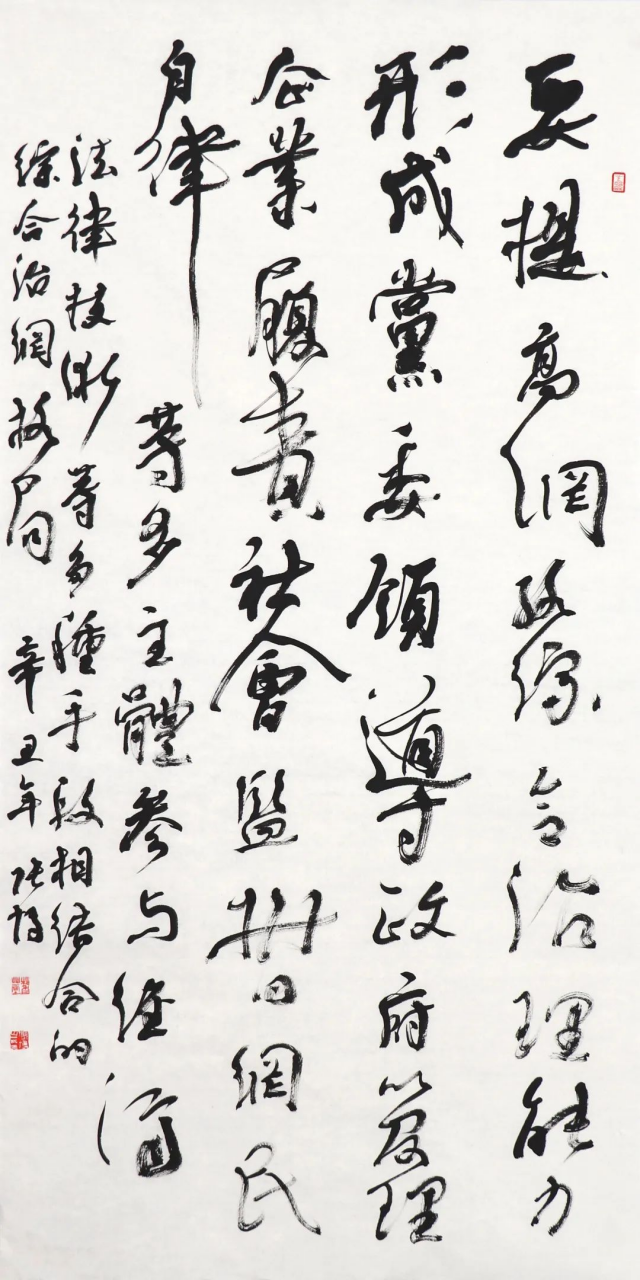 要提高網絡綜合治理能力
形成黨委領導政府管理
企業履責社會監督網民
自律等多主體參与經濟
法律技術等多種手段相結合的
綜合治網格局 辛丑年 張